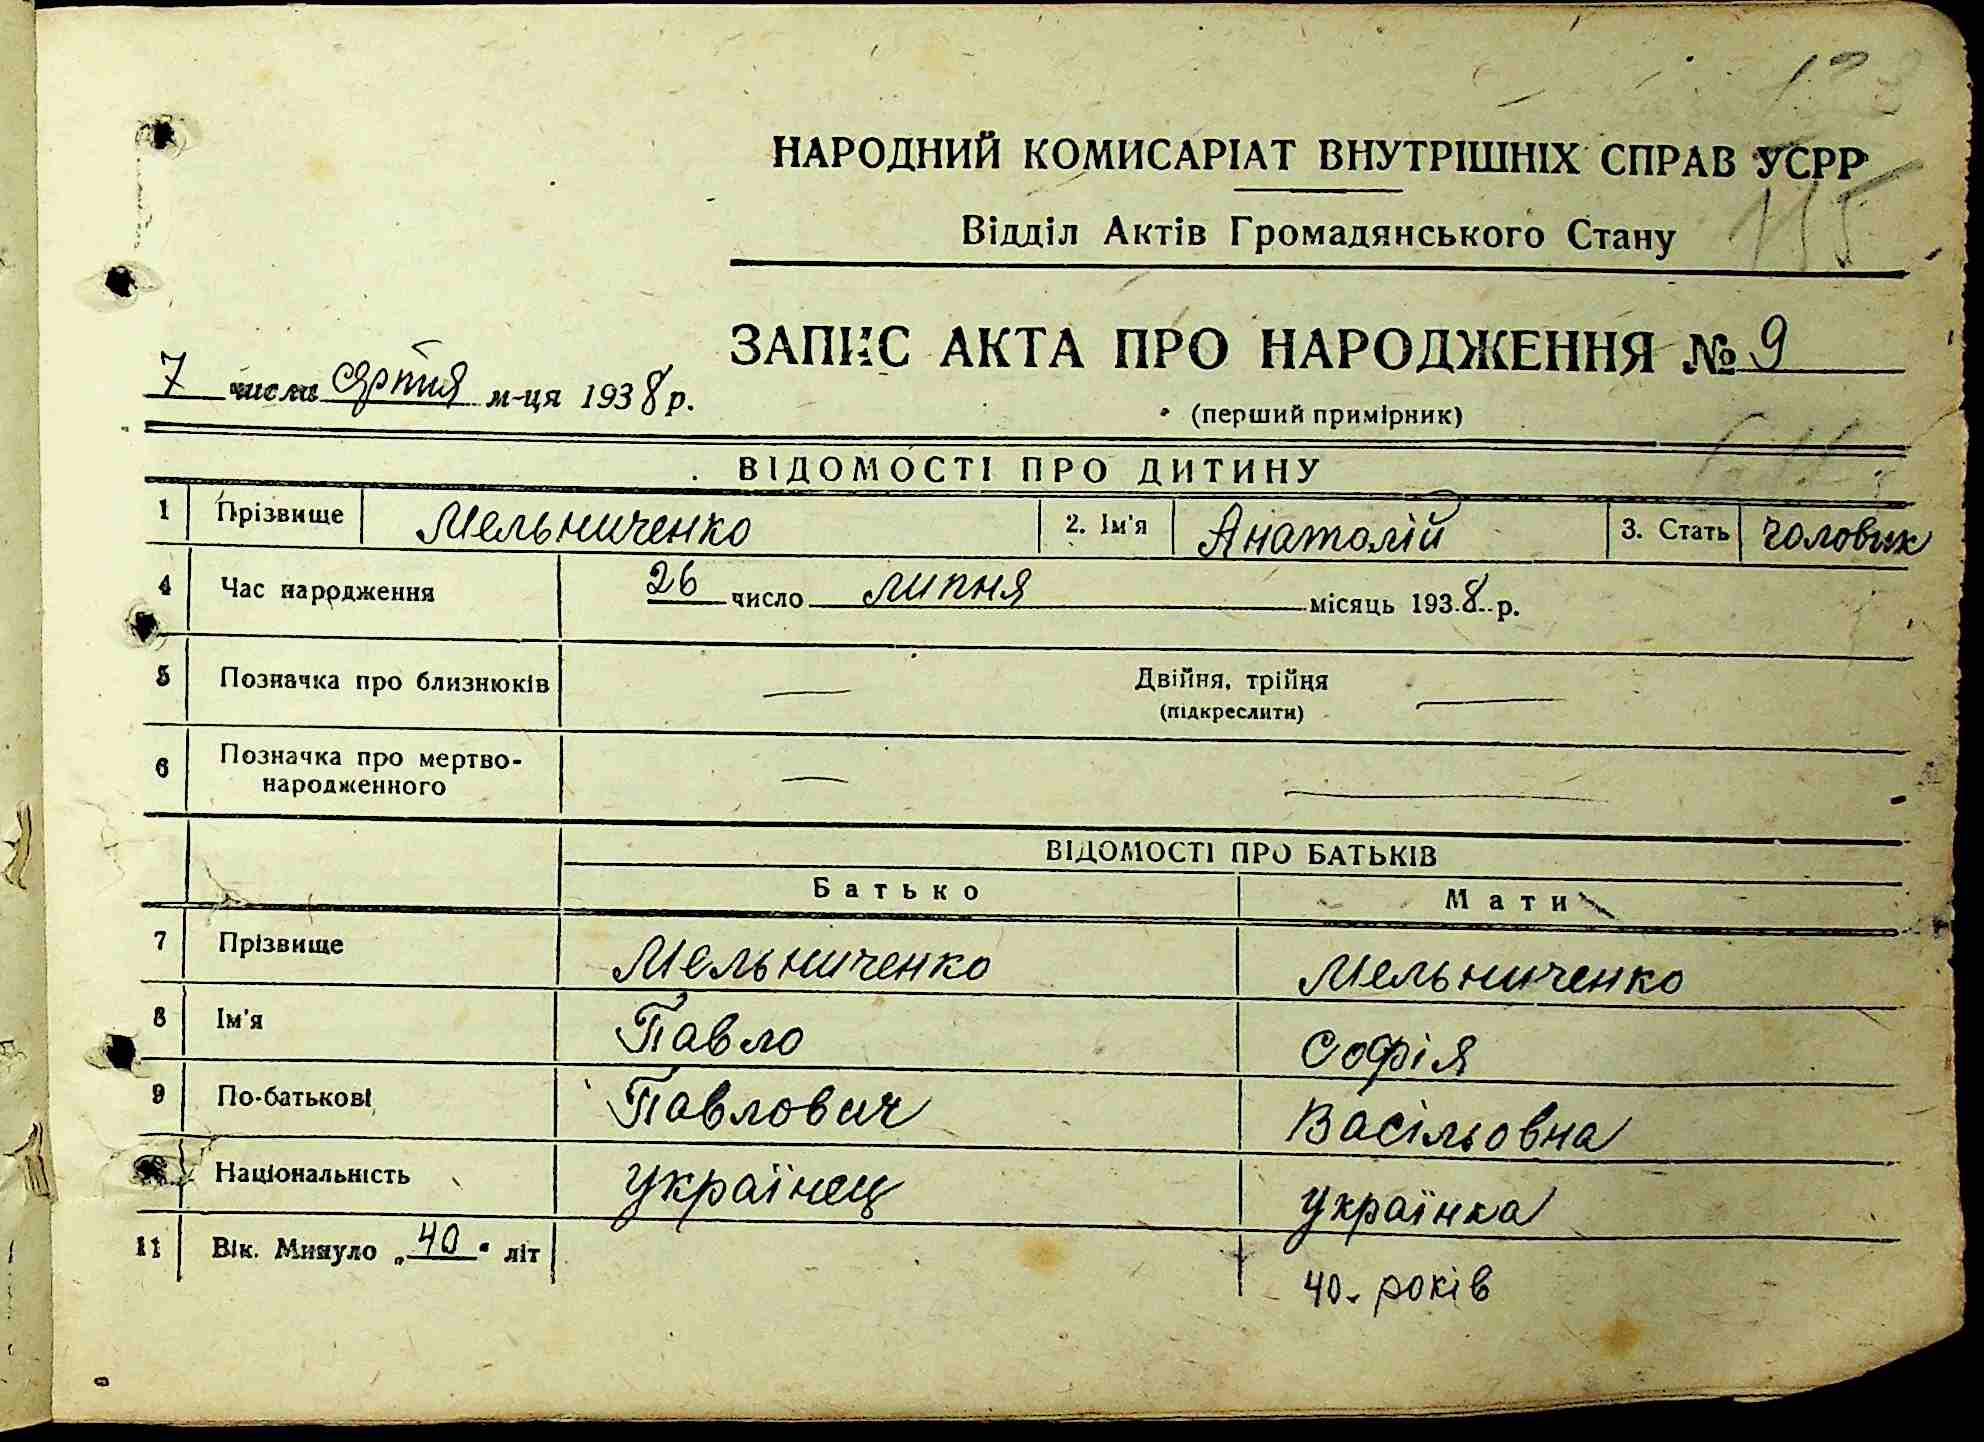 НАРОДНИЙ КОМИСАРІАТ ВНУТРІШНІХ СПРАВ УСРР
115
Відділ Актів Громадянського Стану
ЗАПИС АКТА ПРО НАРОДЖЕННЯ № 9
7 числа серпня м-ця 1938 р.
(перший примірник)
ВІДОМОСТІ ПРО ДИТИНУ
1 Прізвище Мельниченко 2. Ім'я Анатолій 3. Стать чоловик
4 Час народження 26 число липня місяць 1938 р.
5 Позначка про близнюків — Двійня, трійня —
(підкреслити)
6 Позначка про мертво-
народженного — —
ВІДОМОСТІ ПРО БАТЬКІВ
Батько Мати
7 Прізвище Мельниченко Мельниченко
8 Ім'я Павло Софія
9 По-батькові Павлович Васільовна
Національність Українец Українка
11 Вік. Минуло „40" літ 40 років